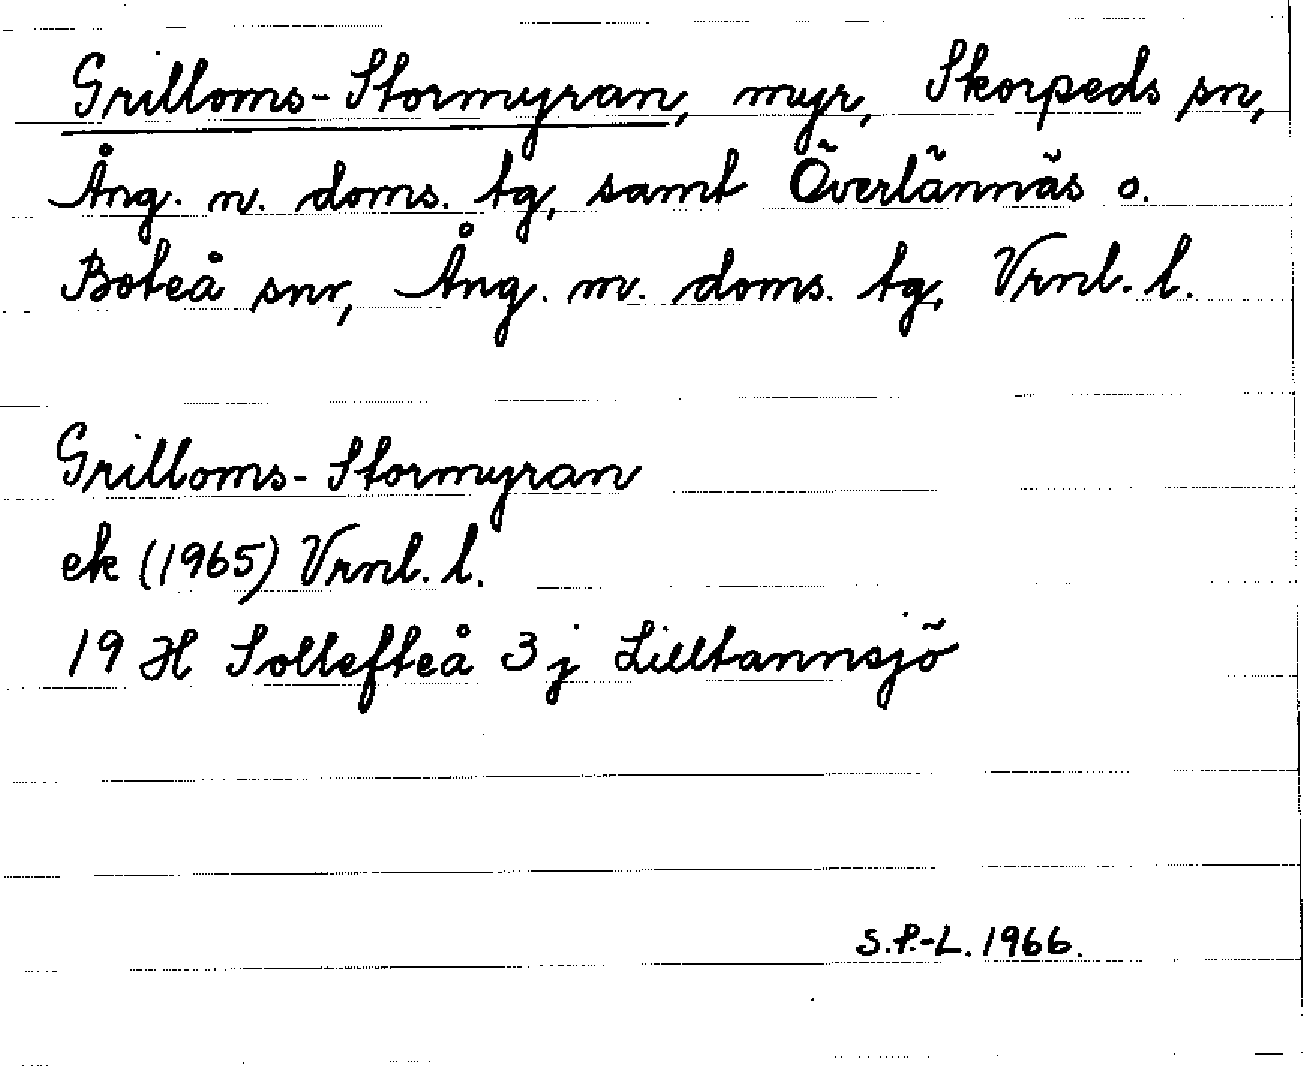 Grilloms-Stormyran, myr, Skorpeds sn,
Ång. n. doms. tg, samt Överlännäs o.
Boteå snr, Ång. m. doms. tg, Vrnl. l.
Grilloms-Stormyran
ek (1965) Vrnl. l.
19 H Sollefteå 3 j Lilltannsjö
S.P.-L. 1966.